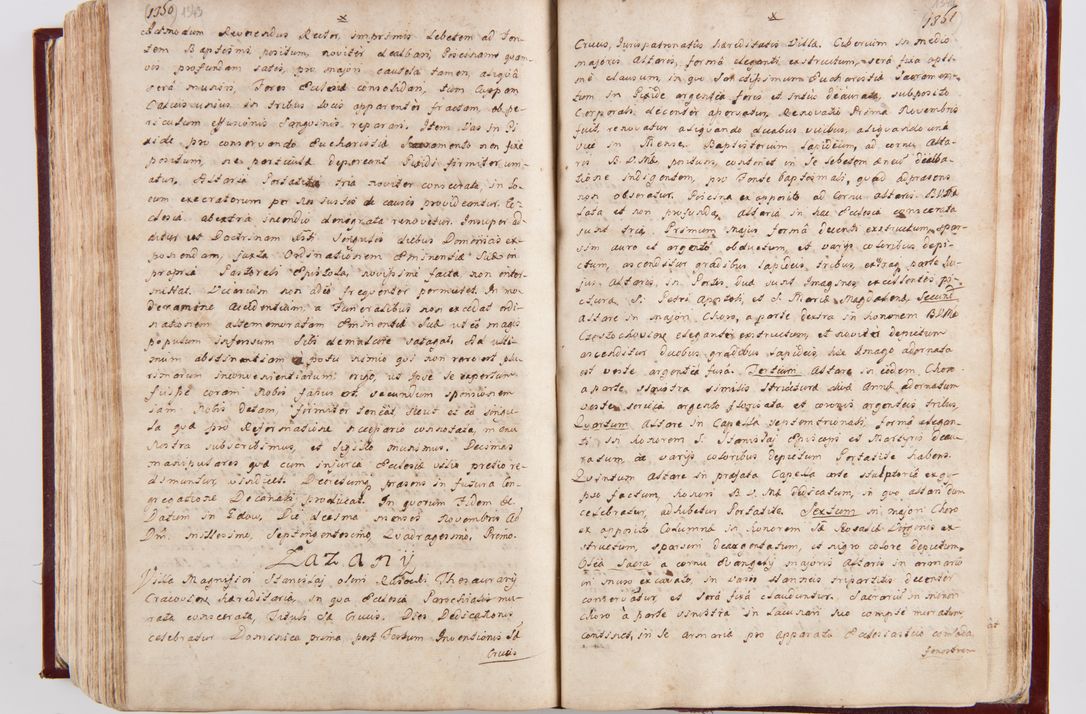 (1350) 1343
Admodum Reverendus Rector, imprimis Lebetem ad Fon-
tem Baptismi positum, noviter dealbari, Piscinam quam-
vis profundam satis, pro majori cautela tamen, aliqua
sera muniri, Fores Ecclesiæ consolidari, tum Cuppam
Calicis unius in tribus locis apparenter fractam, ob pe-
riculum effusionis Sanguinis reparari. Item Vas in Pi-
xide pro conservando Eucharistiæ Sacramento non fixe
positum, ne particulæ depereant Pixidi firmiter uni-
atur, Altaria Portatilia tria noviter consecrata, in lo-
cum execratorum per Nos justis de causis provideantur. Ec-
clesia abextra incendio denigrata renovetur. Insuper ad-
ditur ut Doctrinam Xsti singulis diebus Dominicis ex-
ponendam, juxta Ordinationem Eminentiæ Suæ in
propria Pastorali Epistola, novissime facta non inter-
mittat.
populum infensum Sibi
nimium abstinentiam a potu nimio qui non raro est plu-
rimorum inconvenientiarum origo, ut ipse se expertum
fuisse coram Nobis fassus est
jam Nobis datam, firmiter teneat sicut et ea singu-
la quæ pro Reformatione
Nostra subscribimus, et Sigillo munimus. Decimas
manipulares quæ cum injuria Ecclesiæ vili pretio re-
dimuntur, vindicet. Decretum præsens in futura Con-
gregatione Decanali producat. In quorum Fidem &c.
Datum in Gdow, Die decima mensis Novembris Ao
Dni. Millesimo, Septingentesimo, Quadragesimo, Primo.
ZAZANY
Villa Magnifici Stanislai olim Thesaurarij
Cracoviensis hæreditaria, in qua Ecclesia Parochialis mu-
rata consecrata, Tituli S. Crucis. Dies Dedicationis
celebratur Dominica prima, post Festum Inventionis S.
Crucis
(1351)
Crucis, Jurispatronatus hæreditatis Villæ. Ciborium in medio
majoris Altaris, forma eleganti extructum, sera fixa opti-
me clausum, in quo Sanctissimum Eucharistiæ Sacramen-
tum in Pixide argentea foris et intus deaurata, subposito
Corporali decenter asservatur. Renovatio Prima Novembris
fuit, renovatur aliquando duabus vicibus, aliquando una
vice in Mense. Baptisterium lapideum, ad cornu Alta-
ris B.V.Mæ positum, continet in se Lebetem æneum dealba-
tione indigentem, pro Fonte baptismali, quod ad præsens
non obseratur. Piscina ex opposito ad Cornu Altaris B.V.Mæ
lata et non profunda, Altaria in hac Ecclesia consecrata
sunt tria. Primum Majus forma decenti extructum, spar-
sim auro et argento obductum, et varijs coloribus depi-
ctum, ascenditur gradibus lapideis tribus, extraq parte hu-
jus Altaris, in Portis, duæ sunt Imagines excellentis pi-
cturæ, S. Petri Apostoli, et S. Mariæ Magdalenæ. Secund.
Altare in majori Choro, a parte dextra in honorem B.V.Mæ
Częstochoviensis eleganter extructum, et noviter depictum
ascenditur duobus gradibus lapideis, hæc Imago adornata
est veste argentea fusa. Tertium Altare in eodem Choro
a parte sinistra similis structuræ Divæ Annæ adornatum
veste serica argento florisata et coronis argenteis tribus.
Quartum Altare in Capella septentrionali, forma elegan-
ti in honorem S. Stanislai Episcopi et Martyris deau-
ratum, ac varijs coloribus depictum Portatile habens.
Quintum Altare in præfata Capella arte sculptoria ex gy-
pso factum, honori B.V.Mæ dedicatum, in quo aliquando dum
celebratur, adhibetur Portatile. Sextum in majori Choro
ex opposito Columnæ in honorem Sæ Rosaliæ Virginis ex-
structum, sparsim deargentatum, et nigro colore depictum.
Olea Sacra a cornu Evangelij majoris Altaris in armario
in muro excavato, in Vasis stanneis tripartitis decenter
conservatur, et sera fixa clauduntur. Sacrarium in minori
choro a parte sinistra in lacunari suo compte muratum
consistit, in se armaria pro apparatu Ecclesiastico comoda
fenestram